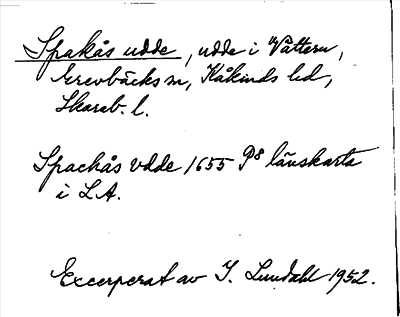 Spakås udde, udde i Vättern,
Grevbäcks sn, Kåkinds hd,
Skarab. l.
Spachås Udde 1655 P8 länskarta
i L.A.
Excerperat av I. Lundahl 1952.